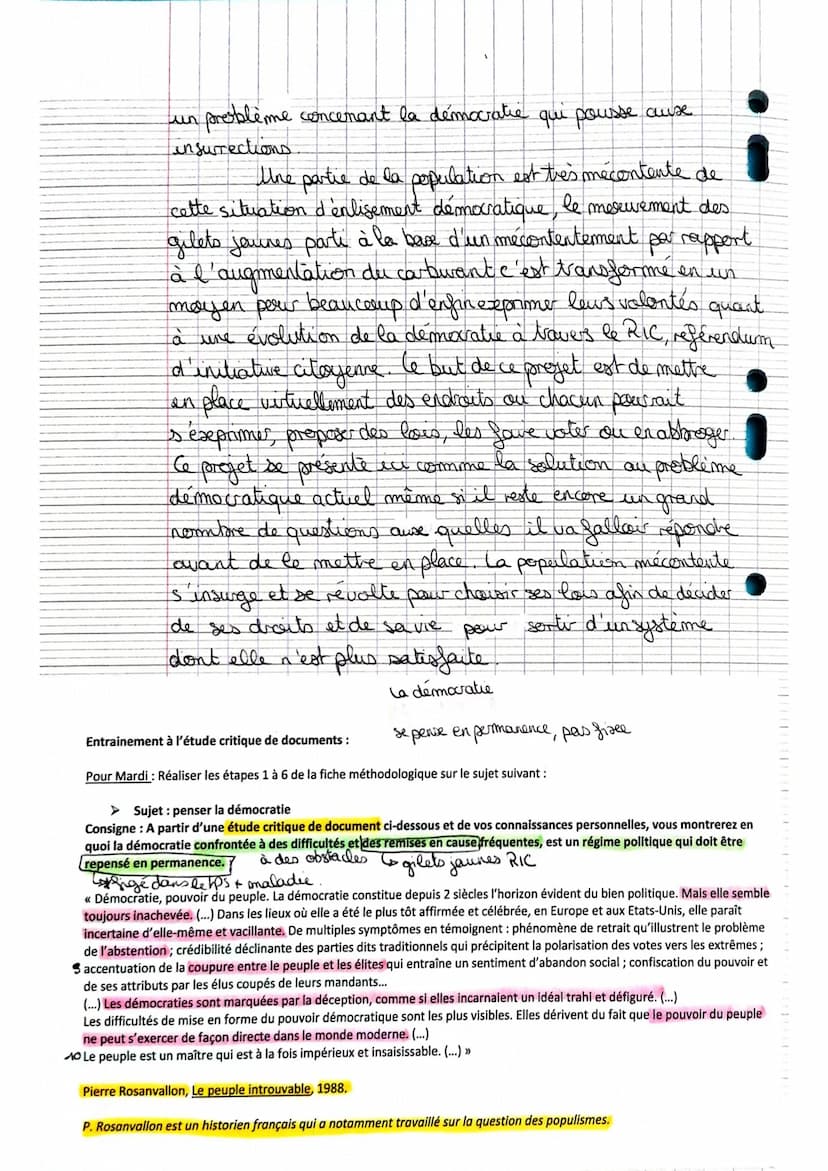 un problème concenant la démocratie qui pousse auxe
insurrections.
Une partie de la population est très mécontente de
cette situation d'enlisement démocratique, le mouvement des
gilets jaunes parti à la base d'un mécontentement par rapport
à l'augmentation du carburant c'est transformé en un
moyen pour beaucoup d'enfin exprimer leurs volontés quant
à une évolution de la démocratie à travers le RIC, référendum
d'initiative citoyenne. Le but de ce projet est de mettre
en place virtuellement des endroits ou chacun pourrait
s'exprimer, proposer des lois, les faire voter ou en abbroger.
Ce projet se présente ici comme la solution au problème
démocratique actuel même si il reste encore un grand
nombre de questions aux quelles il va falloir répondre
avant de le mettre en place. La population mécontente
s'insurge et se révolte pour choisir ses lois afin de décider
de ses droits et de sa vie pour sortir d'un système
dont elle n'est plus satisfaite.
la démocratie
se pense en permanence, pas fixee
Entrainement à l'étude critique de documents :
Pour Mardi : Réaliser les étapes 1 à 6 de la fiche méthodologique sur le sujet suivant :
➢ Sujet : penser la démocratie
Consigne : A partir d'une étude critique de document ci-dessous et de vos connaissances personnelles, vous montrerez en
quoi la démocratie confrontée à des difficultés et des remises en cause fréquentes, est un régime politique qui doit être
repensé en permanence.
à des obstacles ↳ gilets jaunes RIC
↳ figé dans le tps + maladie.
« Démocratie, pouvoir du peuple. La démocratie constitue depuis 2 siècles l'horizon évident du bien politique. Mais elle semble
toujours inachevée. (...) Dans les lieux où elle a été le plus tôt affirmée et célébrée, en Europe et aux Etats-Unis, elle paraît
incertaine d'elle-même et vacillante. De multiples symptômes en témoignent : phénomène de retrait qu'illustrent le problème
de l'abstention ; crédibilité déclinante des parties dits traditionnels qui précipitent la polarisation des votes vers les extrêmes ;
5 accentuation de la coupure entre le peuple et les élites qui entraîne un sentiment d'abandon social ; confiscation du pouvoir et
de ses attributs par les élus coupés de leurs mandants...
(...) Les démocraties sont marquées par la déception, comme si elles incarnaient un idéal trahi et défiguré. (...)
Les difficultés de mise en forme du pouvoir démocratique sont les plus visibles. Elles dérivent du fait que le pouvoir du peuple
ne peut s'exercer de façon directe dans le monde moderne. (...)
10 Le peuple est un maître qui est à la fois impérieux et insaisissable. (...) »
Pierre Rosanvallon, Le peuple introuvable, 1988.
P. Rosanvallon est un historien français qui a notamment travaillé sur la question des populismes.